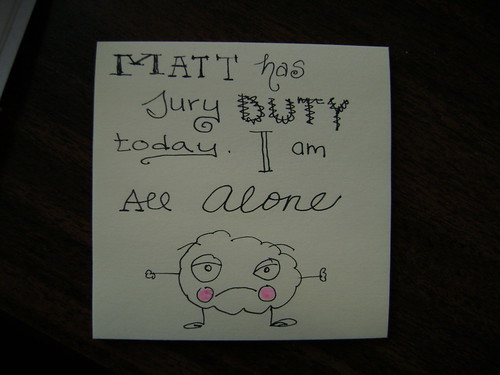 MATT has
Jury DUTY
today. I am
All alone